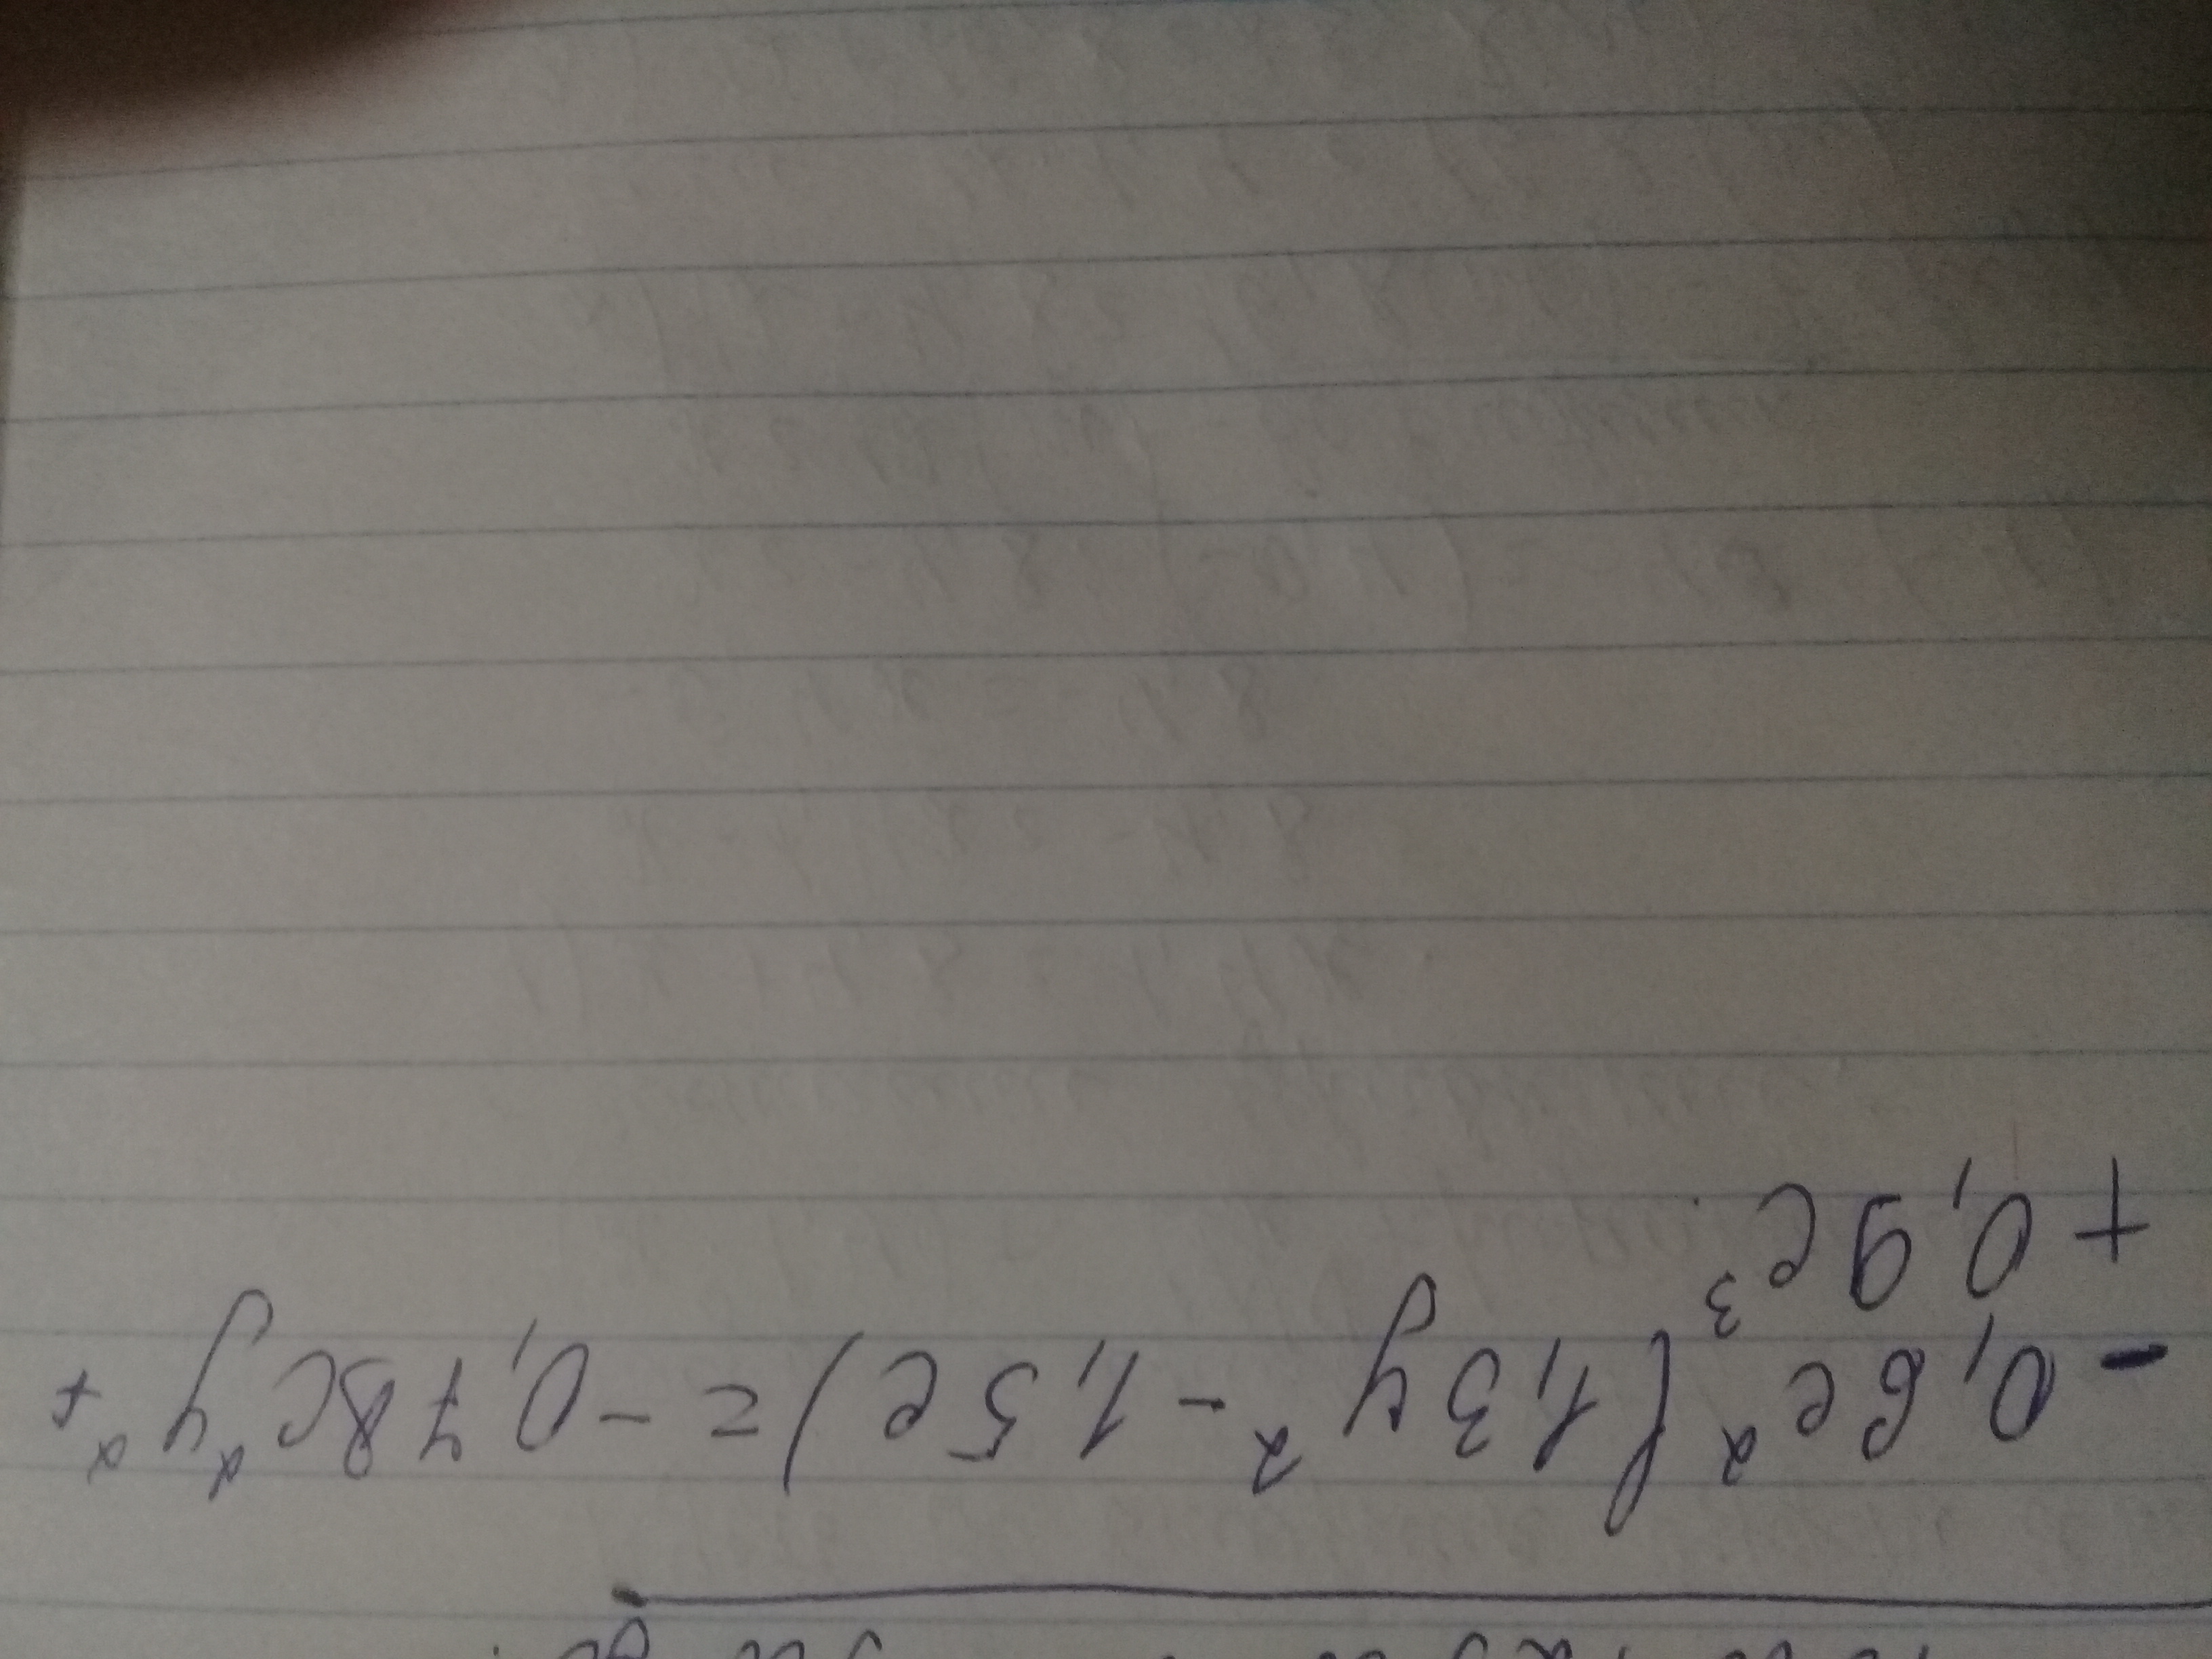 - 0,6c² (1,3y² - 1,5c) = - 0,78c²y² +
+ 0,9c³.